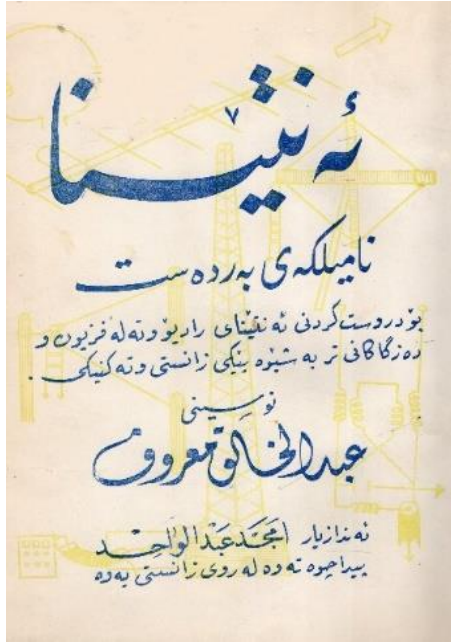 ئەنتێنا
نامیلکەی بەردەست
بۆ دروست کردنی ئەنتێنای رادیۆ و تەلەفزیون و
دەزگاکانی تر بە شێوە یێکی زانستی و تەکنیکی .
نوسینی
عبدالخالق معروف
ئەندازیار امجد عبدالواحد
پیداچوە تەوە لە روی زانستی یەوە